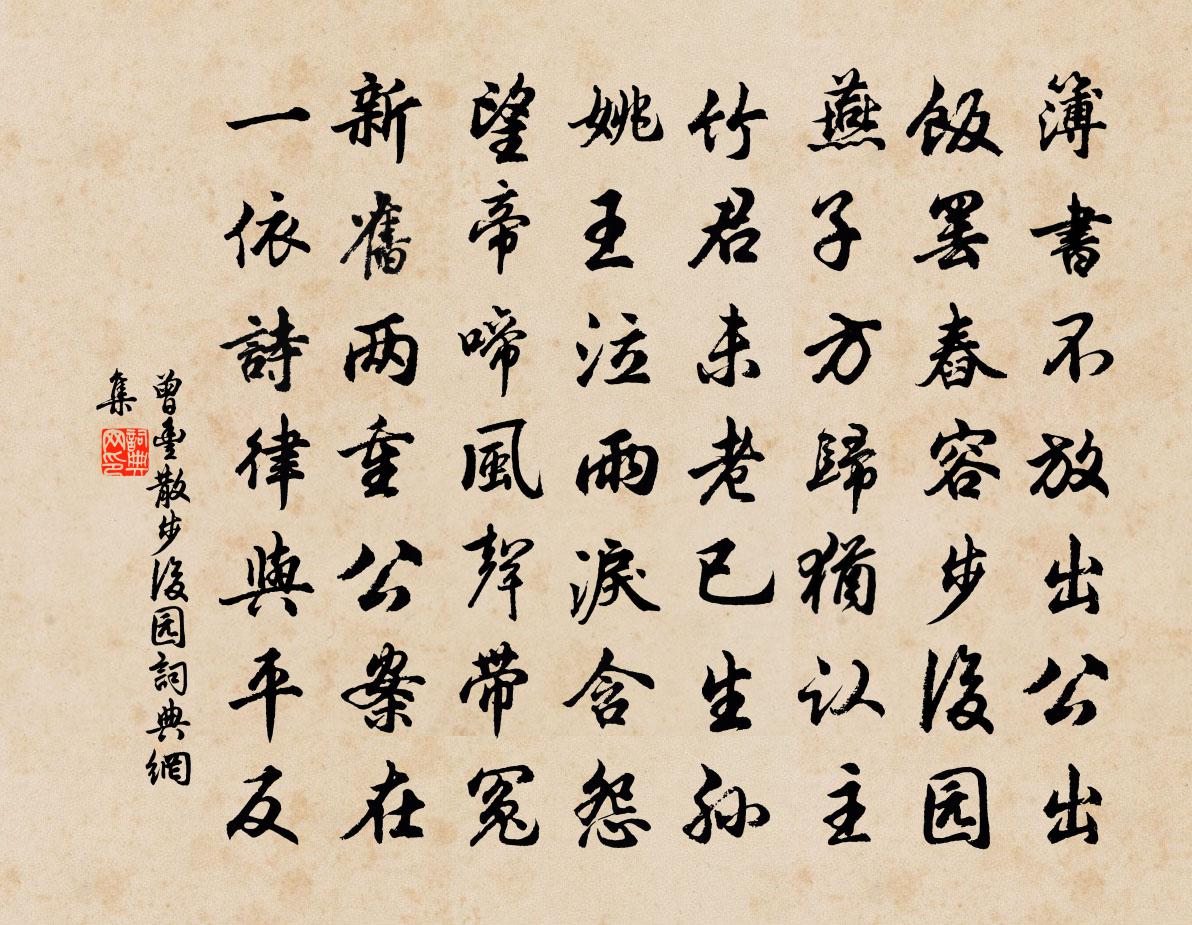 簿書不放出公出
飯罷舂容步後园
燕子方歸猶认主
竹君未老已生孙
姚王泣雨淚含怨
望帝啼風聲带冤
新舊两重公案在
一依詩律與平反
曾豊散步後园詞典網
集
詞典
网印